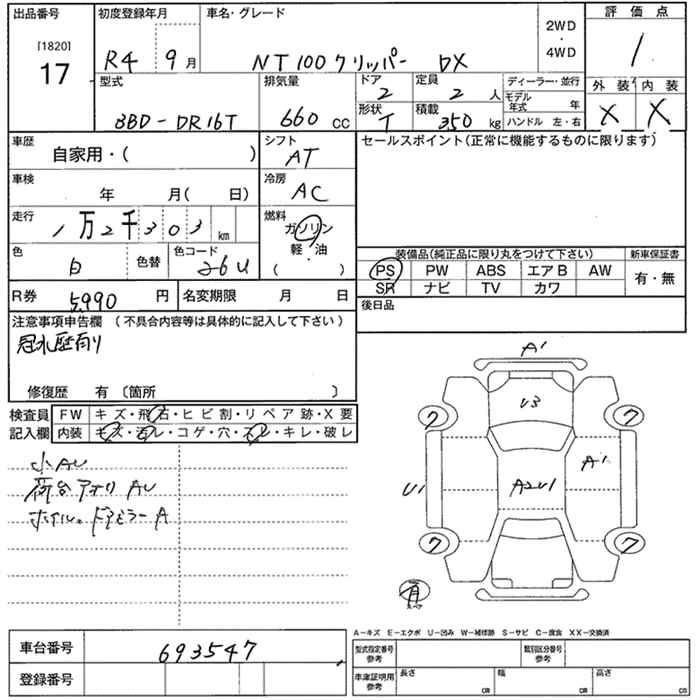 出品番号 初度登録年月 車名・グレード 2WD・4WD 評価点
[1820]
17 R4 9月 NT100クリッパー DX 1
型式 排気量 ドア 定員 ディーラー・並行 外装 内装
2 2人
3BD-DR16T 660 cc 形状 積載 モデル年式 年 X X
T 350 kg ハンドル 左・右
車歴 自家用・( ) シフト AT セールスポイント(正常に機能するものに限ります)
車検 年 月( 日) 冷房 AC
走行 1万2千303 km 燃料 ガソリン
軽・油
( )
色 白 色替 色コード 26U
装備品(純正品に限り丸をつけて下さい) 新車保証書
PS PW ABS エアB AW 有・無
SR ナビ TV カワ
R券 5,990 円 名変期限 月 日 後日品
注意事項申告欄 (不具合内容等は具体的に記入して下さい)
冠水歴有り
修復歴 有 〔箇所 〕
検査員 FW キズ・飛石・ヒビ割・リペア跡・X要
記入欄 内装 キズ・汚レ・コゲ・穴・スレ・キレ・破レ
小AU
荷台アオリ AU
ホイル。ドアミラーA
A1
U3
7 7
U1 A2U1 A1
7 7
有
A-キズ E-エクボ U-凹み W-補修跡 S-サビ C-腐食 XX-交換済
車台番号 693547 型式指定番号 参考 類別区分番号 参考
登録番号 車庫証明用 参考 長さ cm 幅 cm 高さ cm